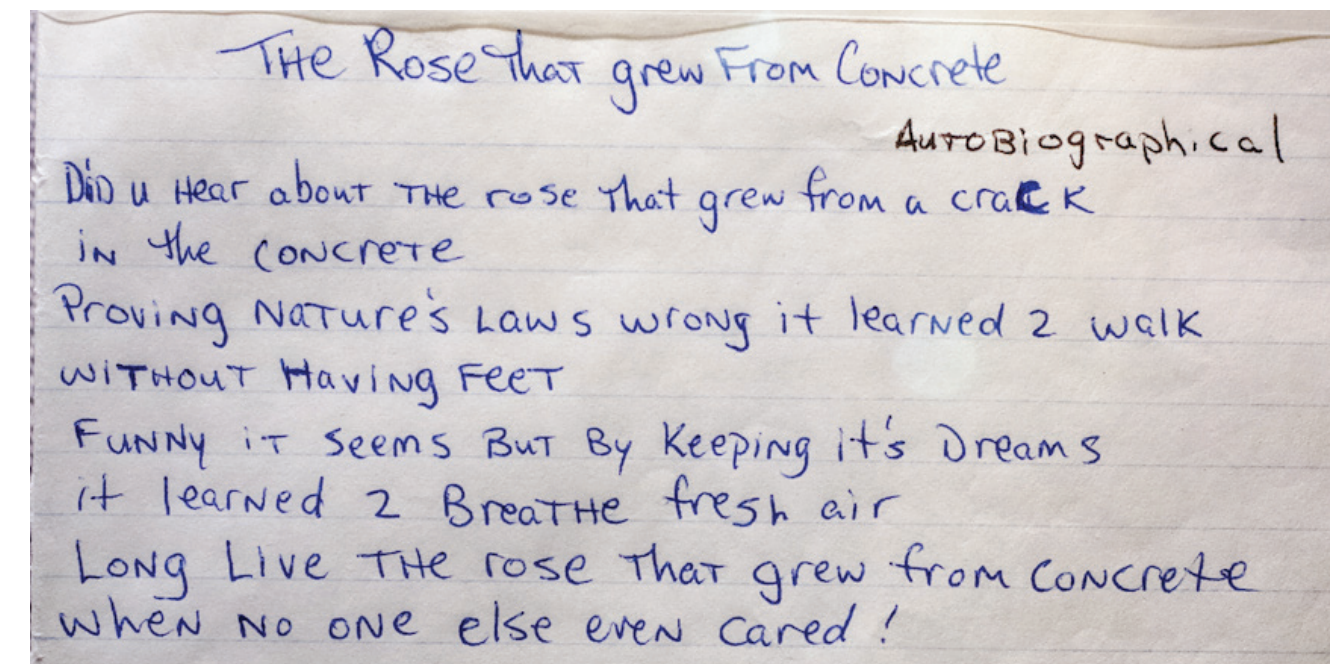 THe Rose That grew From Concrete
AutoBiographical
Did u Hear about THe rose That grew from a cracK
in the concrete
Proving Nature's Laws wrong it learned 2 walk
without Having Feet
Funny it seems But By Keeping it's Dreams
it learned 2 BreaTHe fresh air
Long Live THe rose That grew from concrete
when no one else even cared!